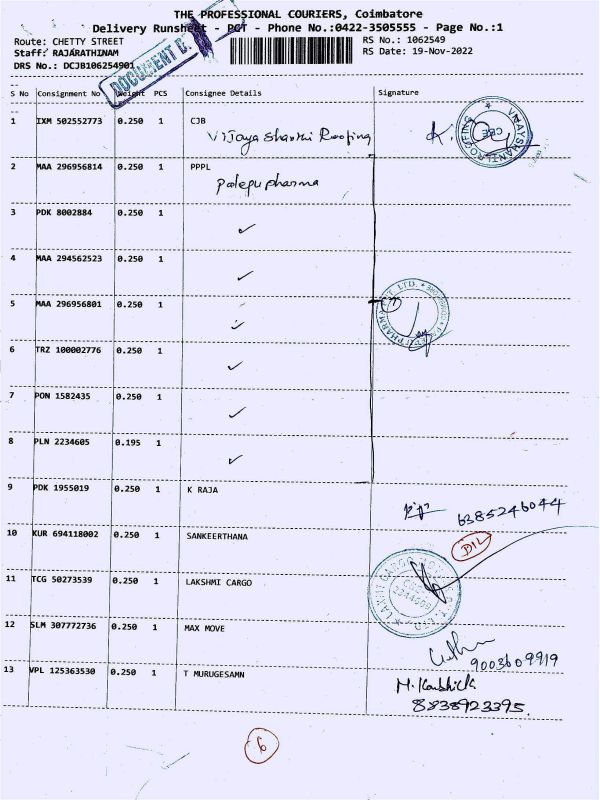 THE PROFESSIONAL COURIERS, Coimbatore
Delivery Runsheet - PCT - Phone No.:0422-3505555 - Page No.:1
Route: CHETTY STREET
RS No.: 1062549
Staff: RAJARATHINAM
RS Date: 19-Nov-2022
DRS No.: DCJB106254901
DOCUMENT
S No Consignment No Weight PCS Consignee Details Signature
1 IXM 502552773 0.250 1 CJB
Vijaya Shanthi Roofing
2 MAA 296956814 0.250 1 PPPL
Palepu pharma
3 PDK 8002884 0.250 1
4 MAA 294562523 0.250 1
5 MAA 296956801 0.250 1
6 TRZ 100002776 0.250 1
7 PON 1582435 0.250 1
8 PLN 2234605 0.195 1
9 PDK 1955019 0.250 1 K RAJA
6385246044
10 KUR 694118002 0.250 1 SANKEERTHANA
DIL
11 TCG 50273539 0.250 1 LAKSHMI CARGO
12 SLM 307772736 0.250 1 MAX MOVE
9003609919
13 VPL 125363530 0.250 1 T MURUGESAMN
M. Koushick
8838923395
6